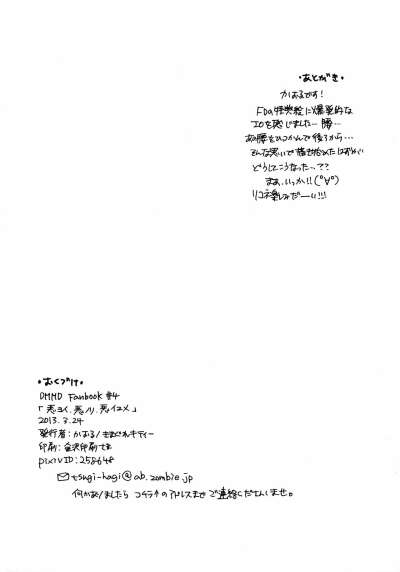 ・あとがき・
かおるです!
FDの特典絵に爆発的な
エロを感じました…腰…
あの腰をひっつかんで後ろから…
そんな思いで描き始めたはずがい
どうしてこうなったっ??
まぁ、いっか!!(°∀°)
リコネ楽しみだーい!!!
・おくづけ・
DMMD Fanbook #4
「悪ヨイ、悪ノリ、悪イユメ」
2013.3.24
発行者:かおる/きまぐれキティー
印刷:金沢印刷さま
pixivID:258648
tsugi-hagi@ab.zombie.jp
何かありましたらコチラのアドレスまでご連絡くださいませ。